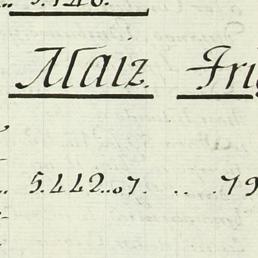 5.140.
Maiz. Fri
5.442..07. .. .79